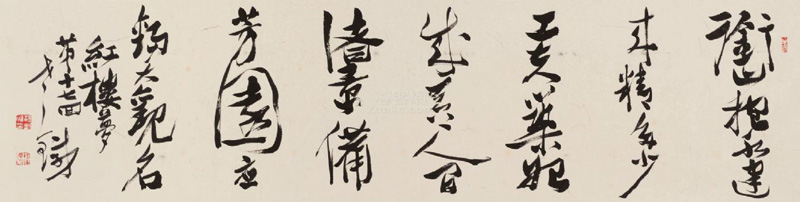 銜山抱水建
来精多少
工夫築始
成天上人间
諸景備
芳園应
錫大觀名
紅樓夢
第十七回